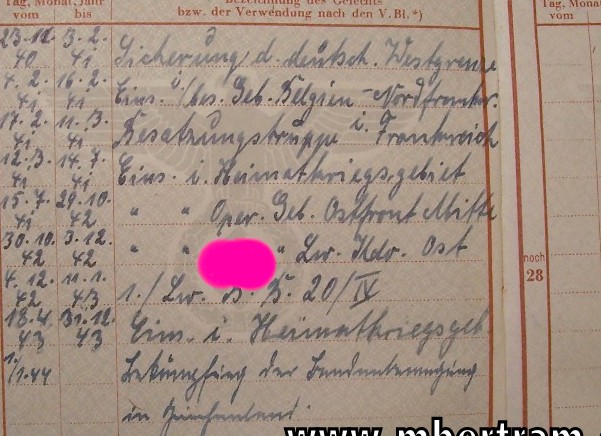 Tag, Monat, Jahr
vom bis
Bezeichnung des Gefechts
bzw. der Verwendung nach den V.Bl.*)
Tag, Mona
vom
23.12. 40 3.2. 41 Sicherung d. deutsch. Westgrenze
4.2. 41 16.2. 41 Eins. i. bes. Geb. Belgien - Nordfrankr.
17.2. 41 11.3. 41 Besatzungstruppe i. Frankreich
12.3. 41 14.7. 41 Eins. i. Heimatkriegsgebiet
15.7. 41 29.10. 42 " " Oper. Geb. Ostfront Mitte
30.10. 42 3.12. 42 " " " Lw. Kdo. Ost
4.12. 42 11.1. 43 1./ Lw. 20/IV
18.4. 43 31.12. 43 Eins. i. Heimatkriegsgeb
1. /1.44 Bekämpfung der Bandenbewegung
in Griechenland.
noch
28
www.mbertram.